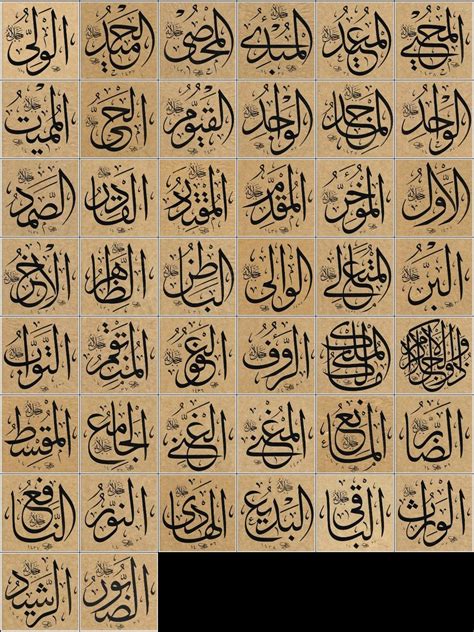 الولي الحميد المحصي المبدئ المعيد المحيي
المميت الحي القيوم الواجد الماجد الواحد
الصمد القادر المقتدر المقدم المؤخر الأول
الآخر الظاهر الباطن الوالي المتعالي البر
التواب المنتقم العفو الرؤف مالك الملك ذو الجلال والإكرام
المقسط الجامع الغني المغني المانع الضار
النافع النور الهادي البديع الباقي الوارث
الرشيد الصبور